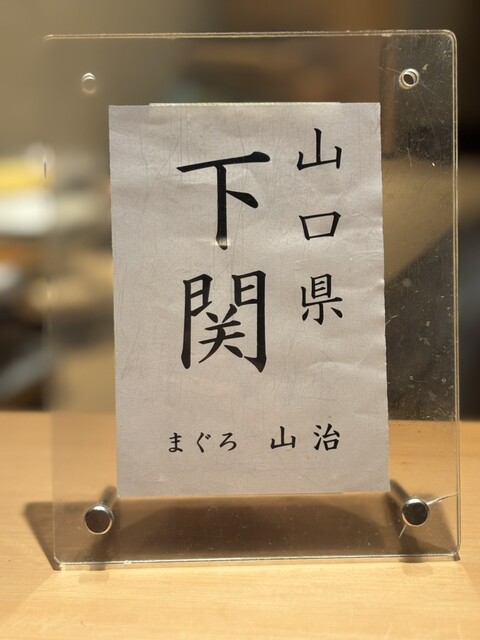 山口県
下関
まぐろ 山治